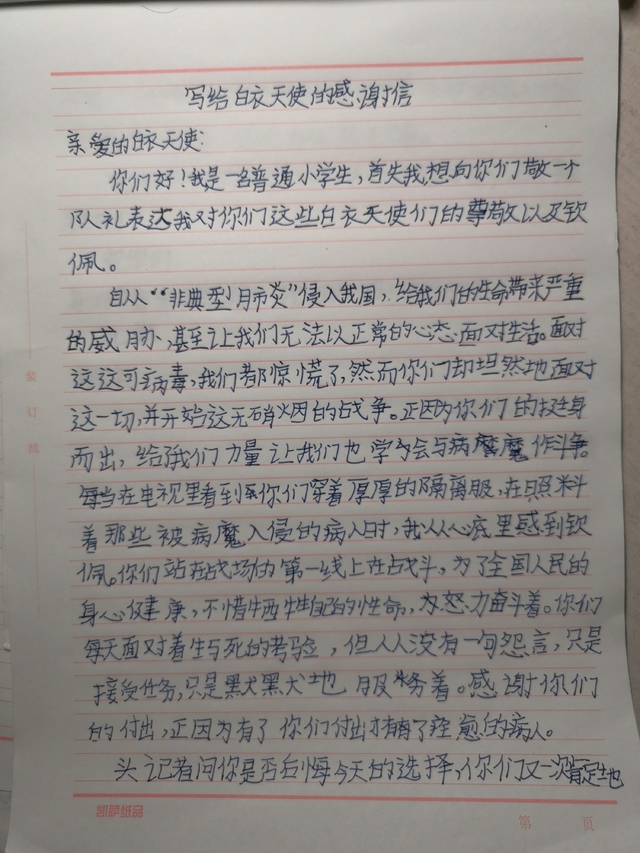 写给白衣天使的感谢信
亲爱的白衣天使:
你们好!我是一名普通小学生,首失我想向你们敬一个
队礼表达我对你们这些白衣天使们的尊敬以及钦
佩。
自从“非典型肺炎”侵入我国,给我们的生命带来严重
的威胁,甚至让我们无法以正常的心态面对生活。面对
这这可病毒,我们都惊慌了,然而你们却坦然地面对
这一切,并开始这无硝烟的战争。正因为你们的挺身
而出,给了我们力量让我们也学会与病魔作斗争。
每当在电视里看到你们穿着厚厚的隔离服,在照料
着那些被病魔入侵的病人时,我从心底里感到钦
佩。你们站在战场的第一线上在战斗,为了全国人民的
身心健康,不惜牺牲自己的性命,为努力奋斗着。你们
每天面对着生与死的考验,但从没有一句怨言,只是
接受任务,只是默默地服务着。感谢你们
的付出,正因为有了你们付出才有了痊愈的病人。
记者问你是否后悔今天的选择,你们又一次肯定地
装
订
线
凯萨纸品
第 页